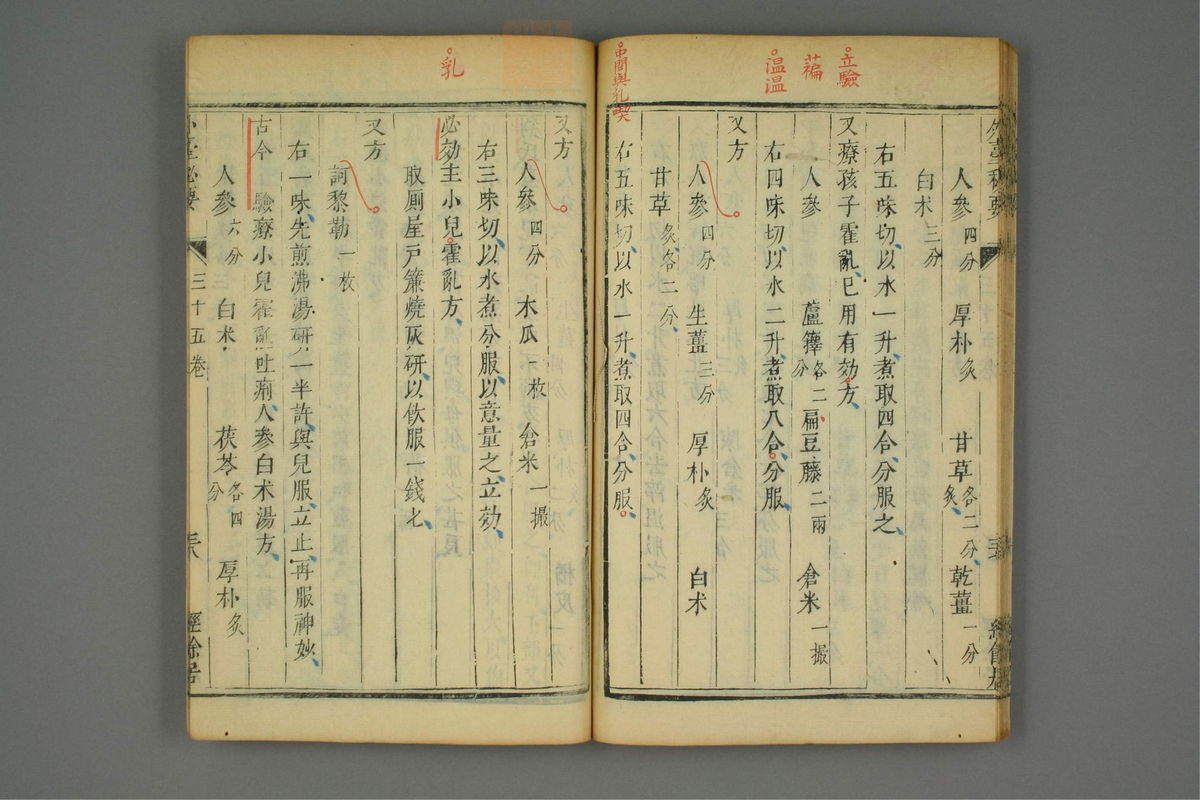 立驗
藊
温温
中間與乳喫
人參四分 厚朴炙 甘草炙各二分 乾薑一分
白术三分
右五味切以水一升煮取四合分服之
又療孩子霍亂巳用有効方
人參 蘆籜各二分 扁豆藤二兩 倉米一撮
右四味切以水二升煮取八合分服
又方
人參四分 生薑三分 厚朴炙 白术
甘草炙各二分
右五味切以水一升煮取四合分服
乳
又方
人參四分 木瓜一枚 倉米一撮
右三味切以水煮分服以意量之立効
必効主小兒霍亂方
取厠屋戸簾燒灰研以飲服一錢匕
又方
訶黎勒一枚
右一味先煎沸湯研一半許與兒服立止再服神妙
古今 驗療小兒霍亂吐痢人參白术湯方
人參六分 白术 茯苓各四分 厚朴炙
外臺秘要 三十五卷 三八 經餘居